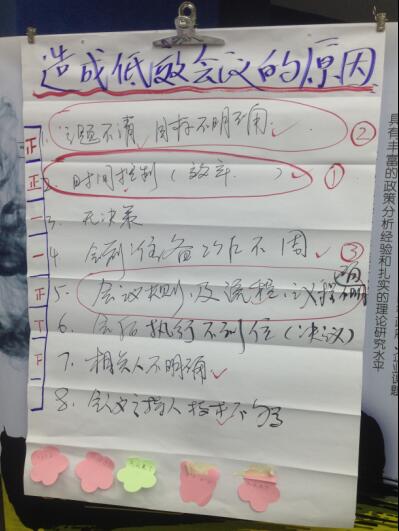 造成低效会议的原因
1. 主题不清 目标不明确 ②
2. 时间控制（效率 ） ①
3. 无决策
4 会前准备工作不周 ③
5. 会议规则及流程，议程不明
6. 会后执行不到位（决议）
7. 相关人不明确
8. 会议主持人技术不够
正
正
一
一
正
T
F
具有丰富的政策分析经验和扎实的理论研究水平